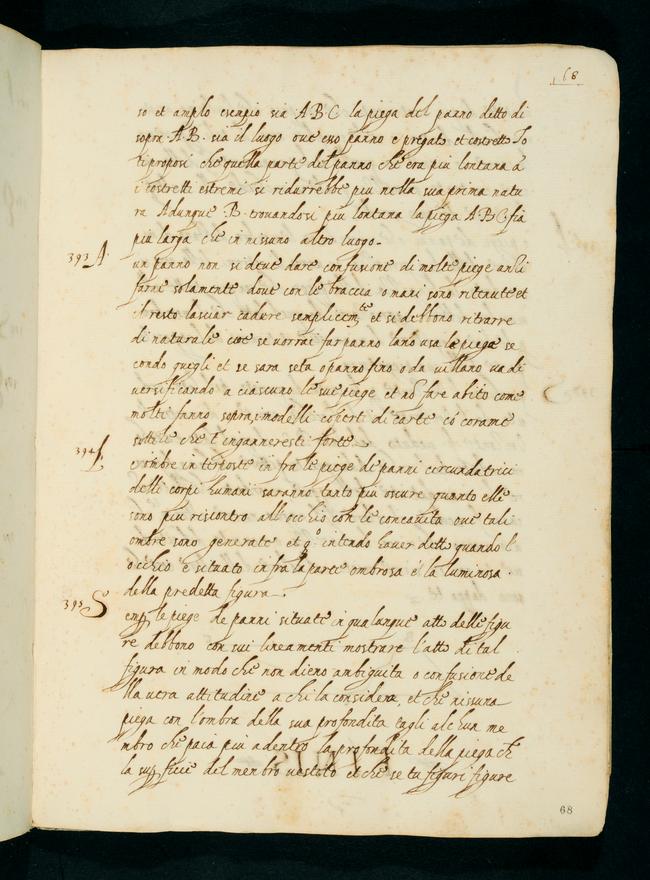 68
so et amplo esenpio sia A B C la piega del panno detto di
sopra A B. sia il luogo oue esso panno e pregato et costretto Io
ti proposi che quella parte del panno che era piu lontana a
i costretti estremi si ridurrebbe piu nella sua prima natu
ra Adunque B. trouandosi piu lontana la piega A B C fia
piu larga che in nissuno altro luogo.
393 A un panno non si deue dare confusione di molte piege anzi
farne solamente doue con le braccia o mani sono ritenute et
il resto lasciar cadere semplicemte et si debbono ritrarre
di naturale cioe se uorrai far panno lano usa le piege se
condo quegli et se sara seta o panno fino o da uillano ua di
uersificando a ciascuno le sue piege et no fare abito come
molti fanno sopra i modelli coperti di carte co corame
sottile che t'inganneresti forte
394 L ombre interposte in fra le piege di panni circundatrici
delli corpi humani saranno tanto piu oscure quanto elle
sono piu riscontro all'occhio con le concauita oue tali
ombre sono generate et qo intendo hauer detto quando l
occhio e situato infra la parte ombrosa e la luminosa.
della predetta figura.
395 S emp le piege de panni situate in qualunque atto delle figu
re debbono con sui lineamenti mostrare l'atto di tal
figura in modo che non dieno ambiguita o confusione de
lla uera attitudine a chi la considera, et che nissuna
piega con l'ombra della sua profondita tagli alchun me
mbro che paia piu adentro la profondita della piega che
la supficie del menbro uestito et che se tu figuri figure
68